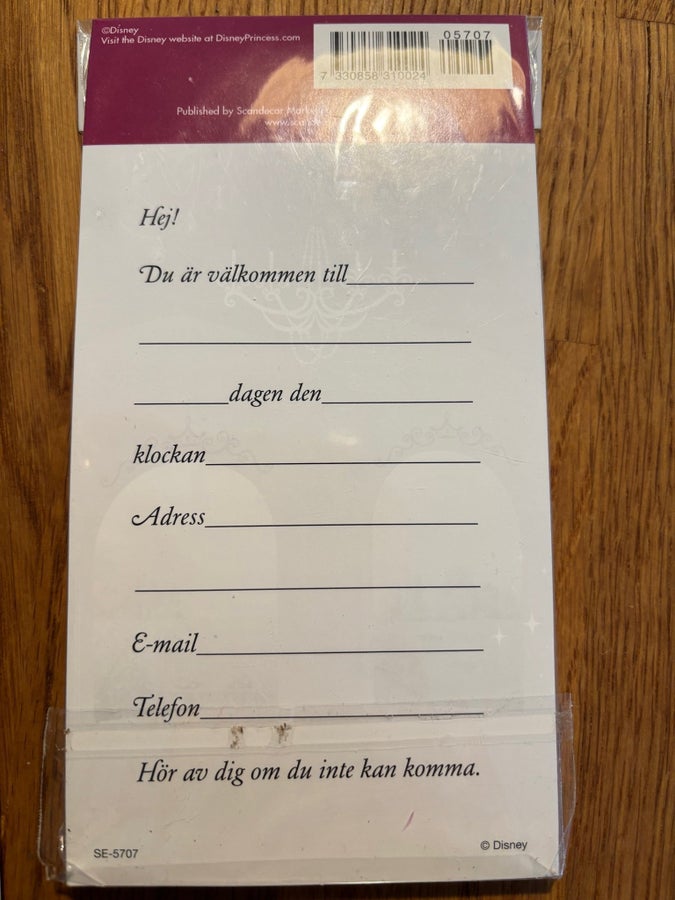 ©Disney
Visit the Disney website at DisneyPrincess.com
05707
7 330858 310024
Published by Scandecor
Hej!
Du är välkommen till
dagen den
klockan
Adress
E-mail
Telefon
Hör av dig om du inte kan komma.
SE-5707
© Disney